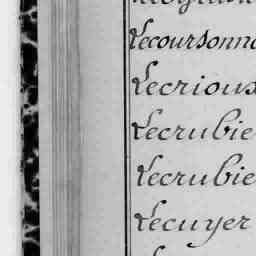 Lecoursonna
Lecrioux
Lecrubie
Lecrubie
Lecuyer